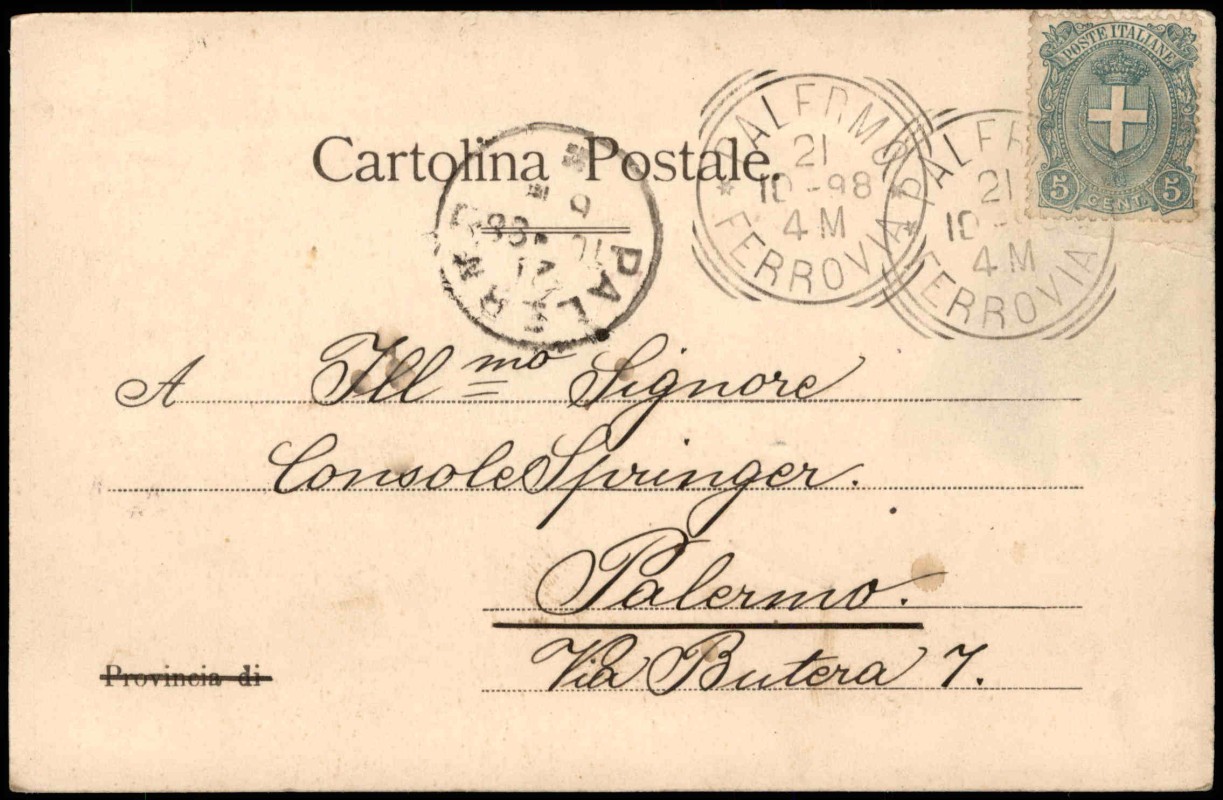 POSTE ITALIANE
5 CENT. 5
PALERMO
21
10-98
4 M
FERROVIA
PALERMO
21
10-
4 M
FERROVIA
Cartolina Postale.
PALERMO
21
10
98
A Ill.mo Signore
Console Springer.
Palermo.
Via Butera 7.
Provincia di